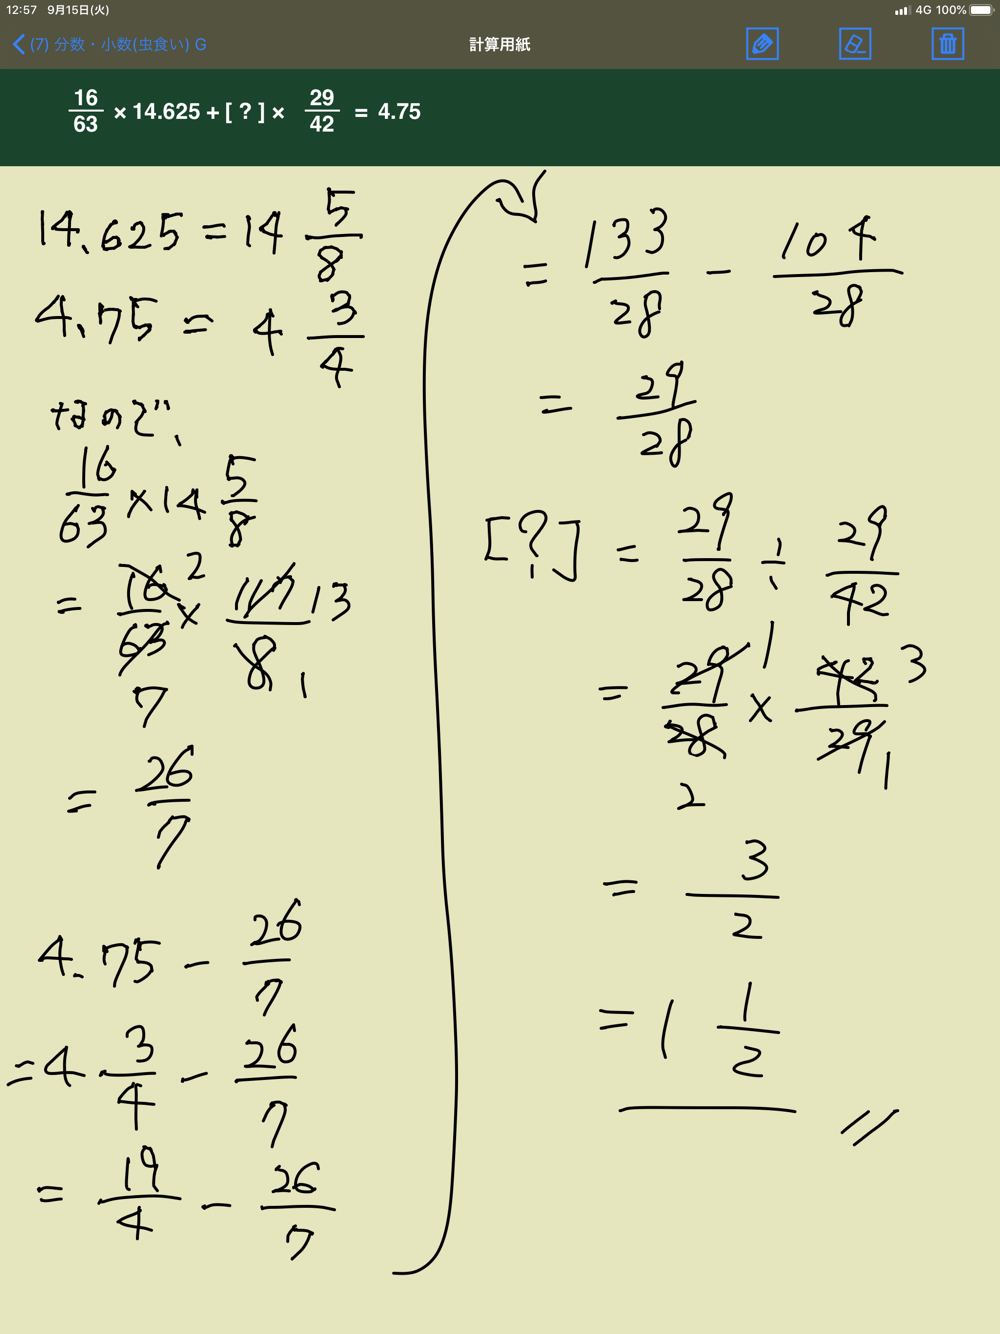 12:57 9月15日(火) 4G 100%
(7) 分数・小数(虫食い) G 計算用紙
16/63 × 14.625 + [ ? ] × 29/42 = 4.75
14.625 = 14 5/8
4.75 = 4 3/4
なので、
16/63 × 14 5/8
= 16/63 × 117/8 2 13 7 1
= 26/7
4.75 − 26/7
= 4 3/4 − 26/7
= 19/4 − 26/7
= 133/28 − 104/28
= 29/28
[?] = 29/28 ÷ 29/42
= 29/28 × 42/29 1 3 2 1
= 3/2
= 1 1/2